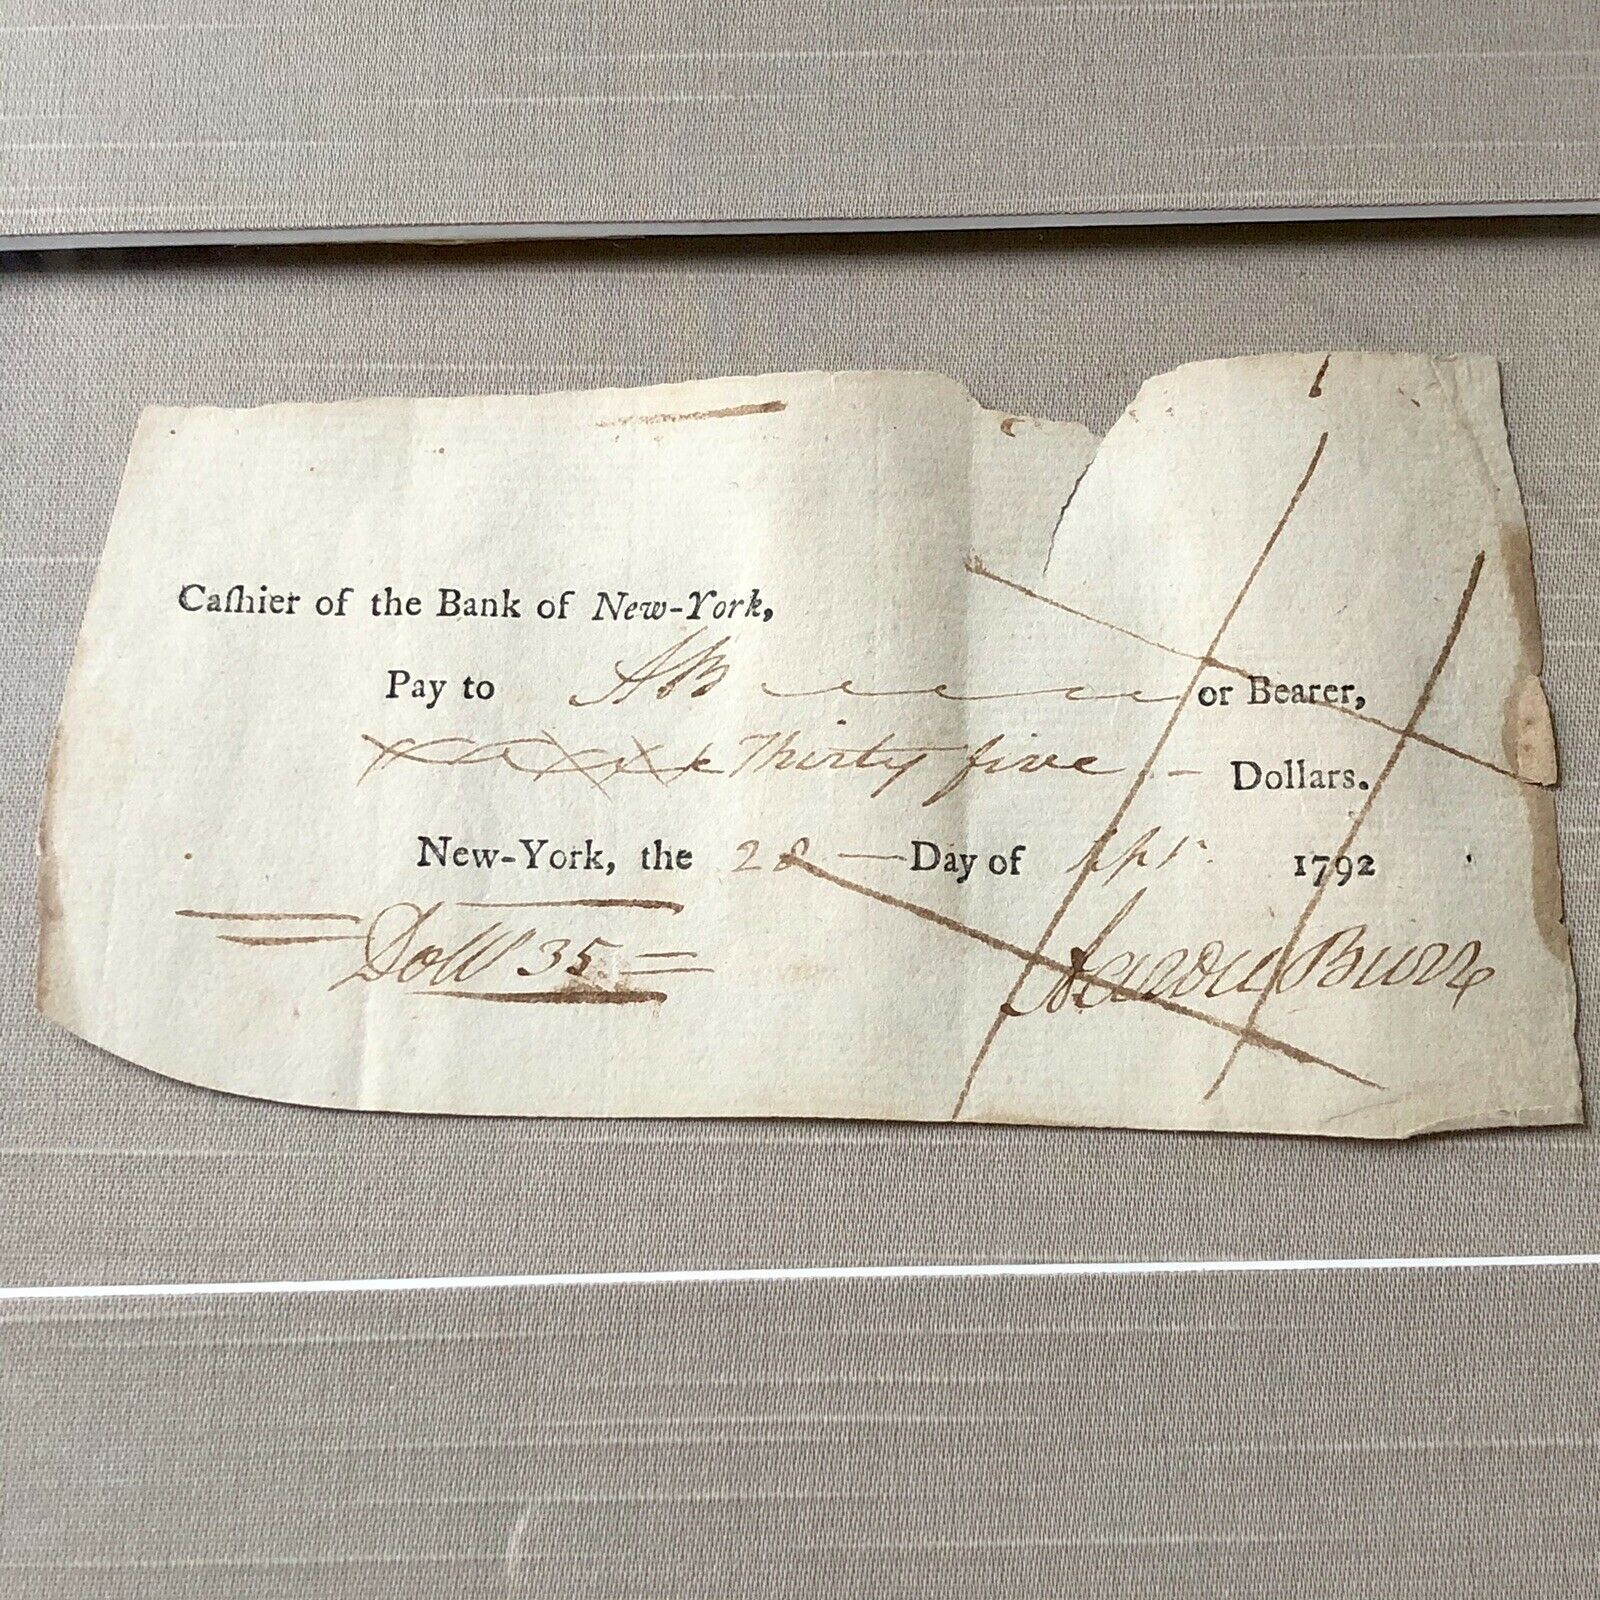 Caſhier of the Bank of New-York,
Pay to AB or Bearer,
Thirty five — Dollars.
New-York, the 28 — Day of Apr. 1792
Doll 35
Aaron Burr